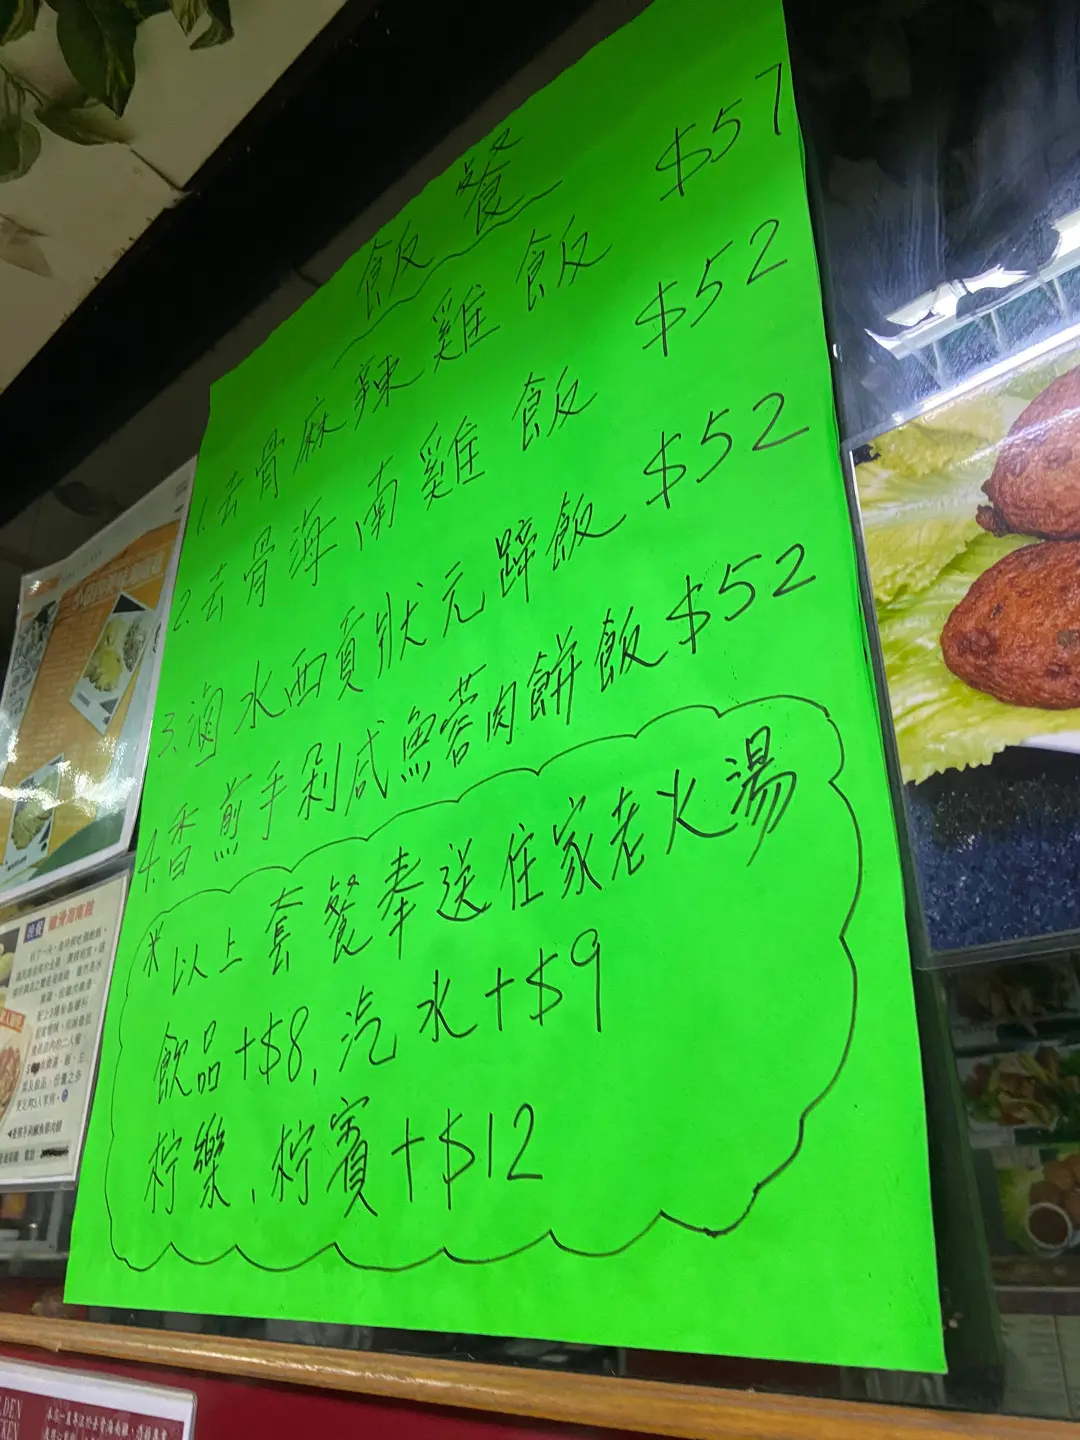 飯餐
1.去骨麻辣雞飯 $57
2.去骨海南雞飯 $52
3.滷水西貢狀元蹄飯 $52
4.香煎手剁咸魚蓉肉餅飯 $52
*以上套餐奉送住家老火湯
飲品+$8,汽水+$9
柠樂、柠賓+$12